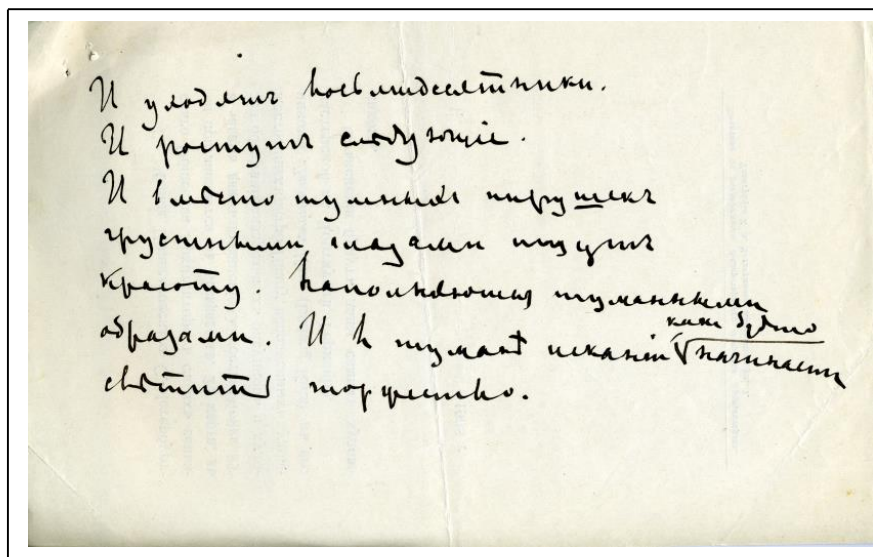 И уходятъ восьмидесятники.
И ростутъ слѣдующіе.
И вмѣсто шумныхъ пирушекъ
грустными глазами ищутъ
красоту. Наполняются туманными
образами. И в туманѣ исканій какъ будто начинаетъ
свѣтитъ торжество.